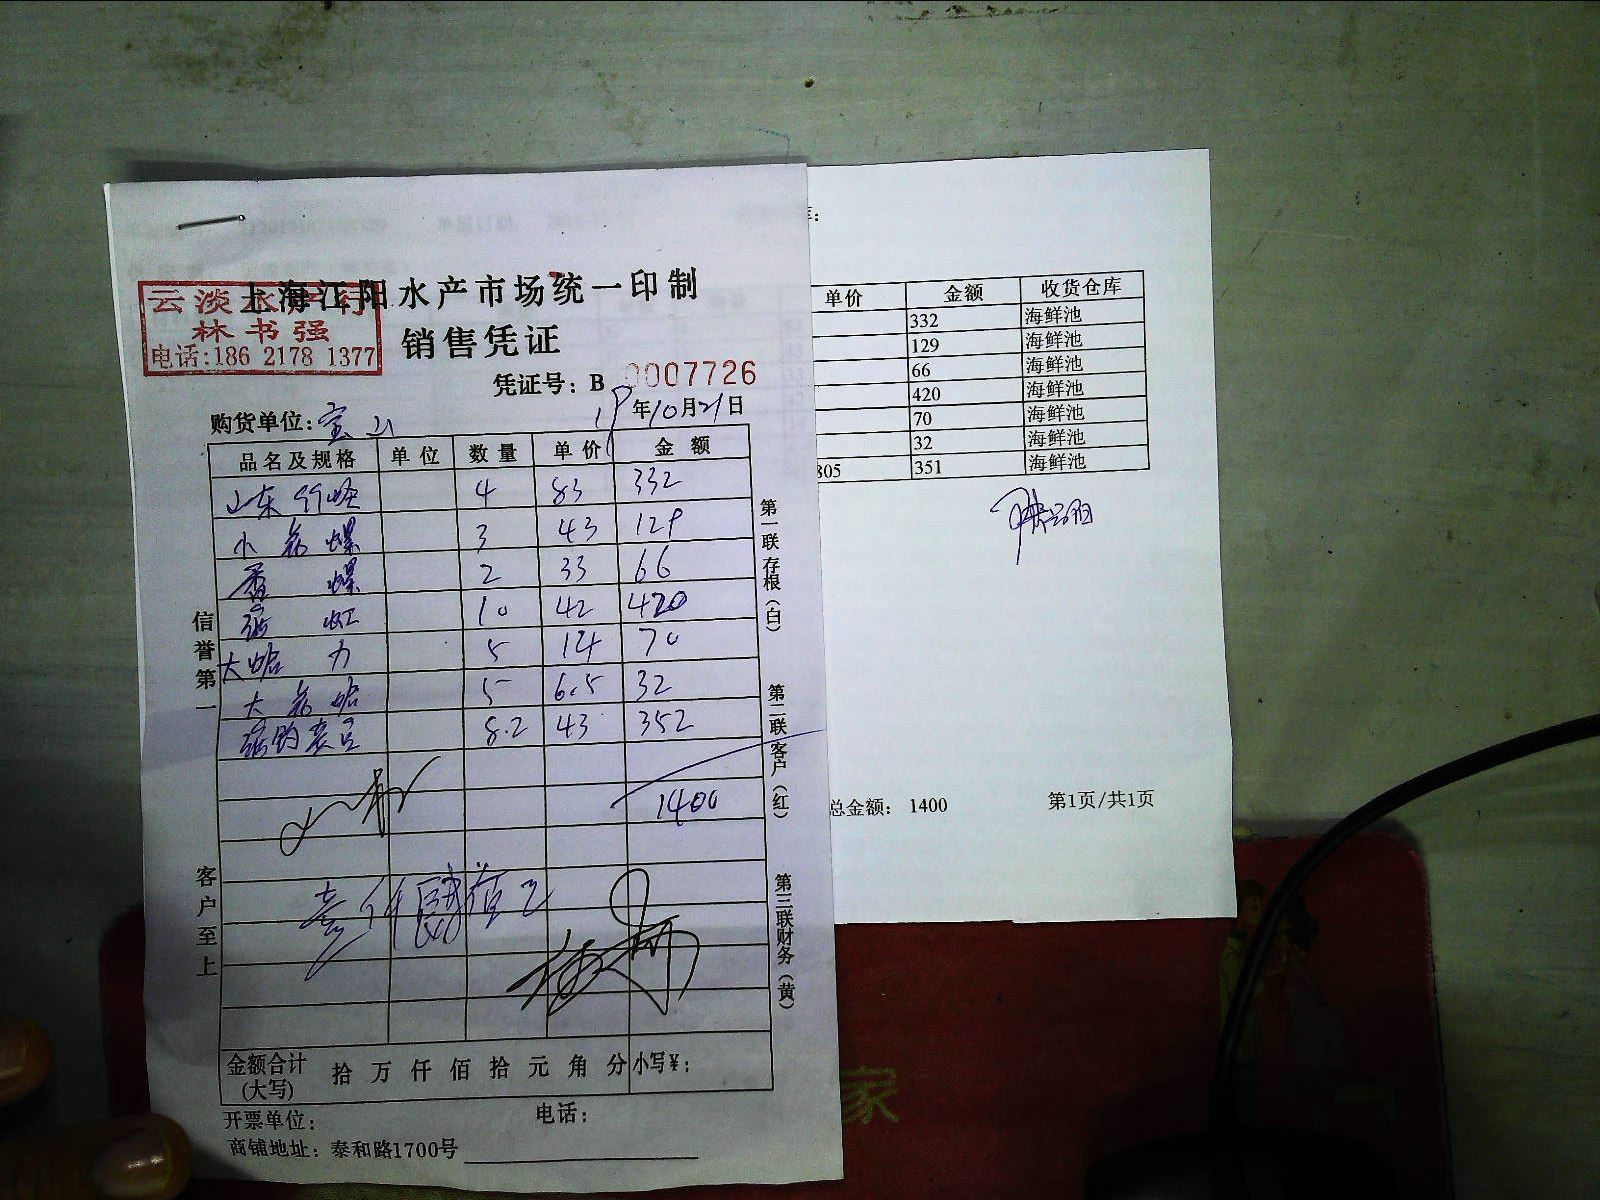 上海江阳水产市场统一印制
云淡水产行
林书强
电话:186 2178 1377
销售凭证
凭证号：B 0007726
购货单位：宝山
19年10月21日
品名及规格 单位 数量 单价 金额
山东竹蛏 4 83 332
小花螺 3 43 129
香螺 2 33 66
10 42 420
大蛤力 5 14 70
大花蛤 5 6.5 32
8.2 43 352
1400
壹仟肆佰元
信誉第一
客户至上
第一联存根（白）
第二联客户（红）
第三联财务（黄）
金额合计(大写) 拾万仟佰拾元角分 小写¥：
开票单位：
电话：
商铺地址：泰和路1700号
单价 金额 收货仓库
332 海鲜池
129 海鲜池
66 海鲜池
420 海鲜池
70 海鲜池
32 海鲜池
805 351 海鲜池
总金额： 1400
第1页/共1页
家